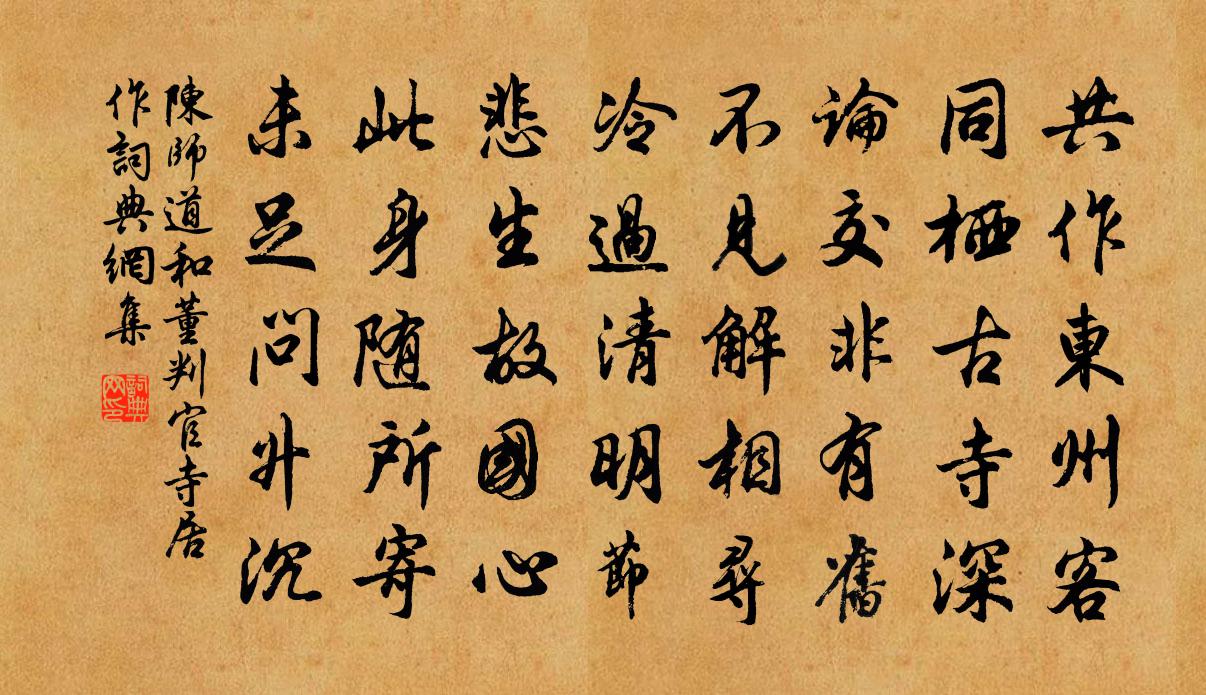 共作東州客
同栖古寺深
論交非有舊
不見解相尋
冷過清明節
悲生故國心
此身隨所寄
未足問升沉
陳師道和董判官寺居
作詞典網集
詞典网印